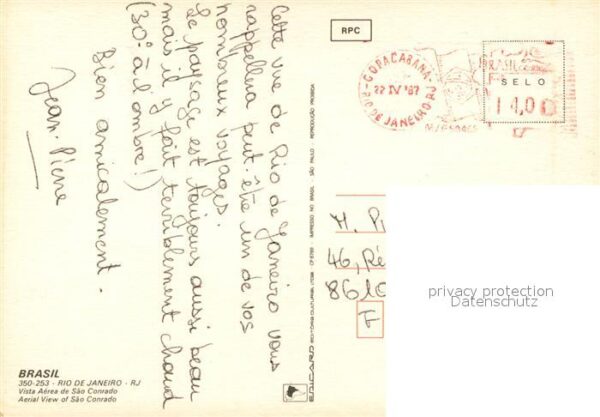 Cette vue de Rio de Janeiro vous
rappellera peut-être un de vos
nombreux voyages.
Le paysage est toujours aussi beau
mais il y fait terriblement chaud
(30° à l'ombre!)
Bien amicalement.
Jean-Pierre
BRASIL
350-253 - RIO DE JANEIRO - RJ
Vista Aérea de São Conrado
Aerial View of São Conrado
EDICARD EDITORA CULTURAL LTDA. IMPRESSO NO BRASIL SÃO PAULO REPRODUÇÃO PROIBIDA
RPC
COPACABANA
22 IV '87
RIO DE JANEIRO-RJ
BRASIL
SELO
14,00
M. P
46, Ré
8610
F
privacy protection
Datenschutz